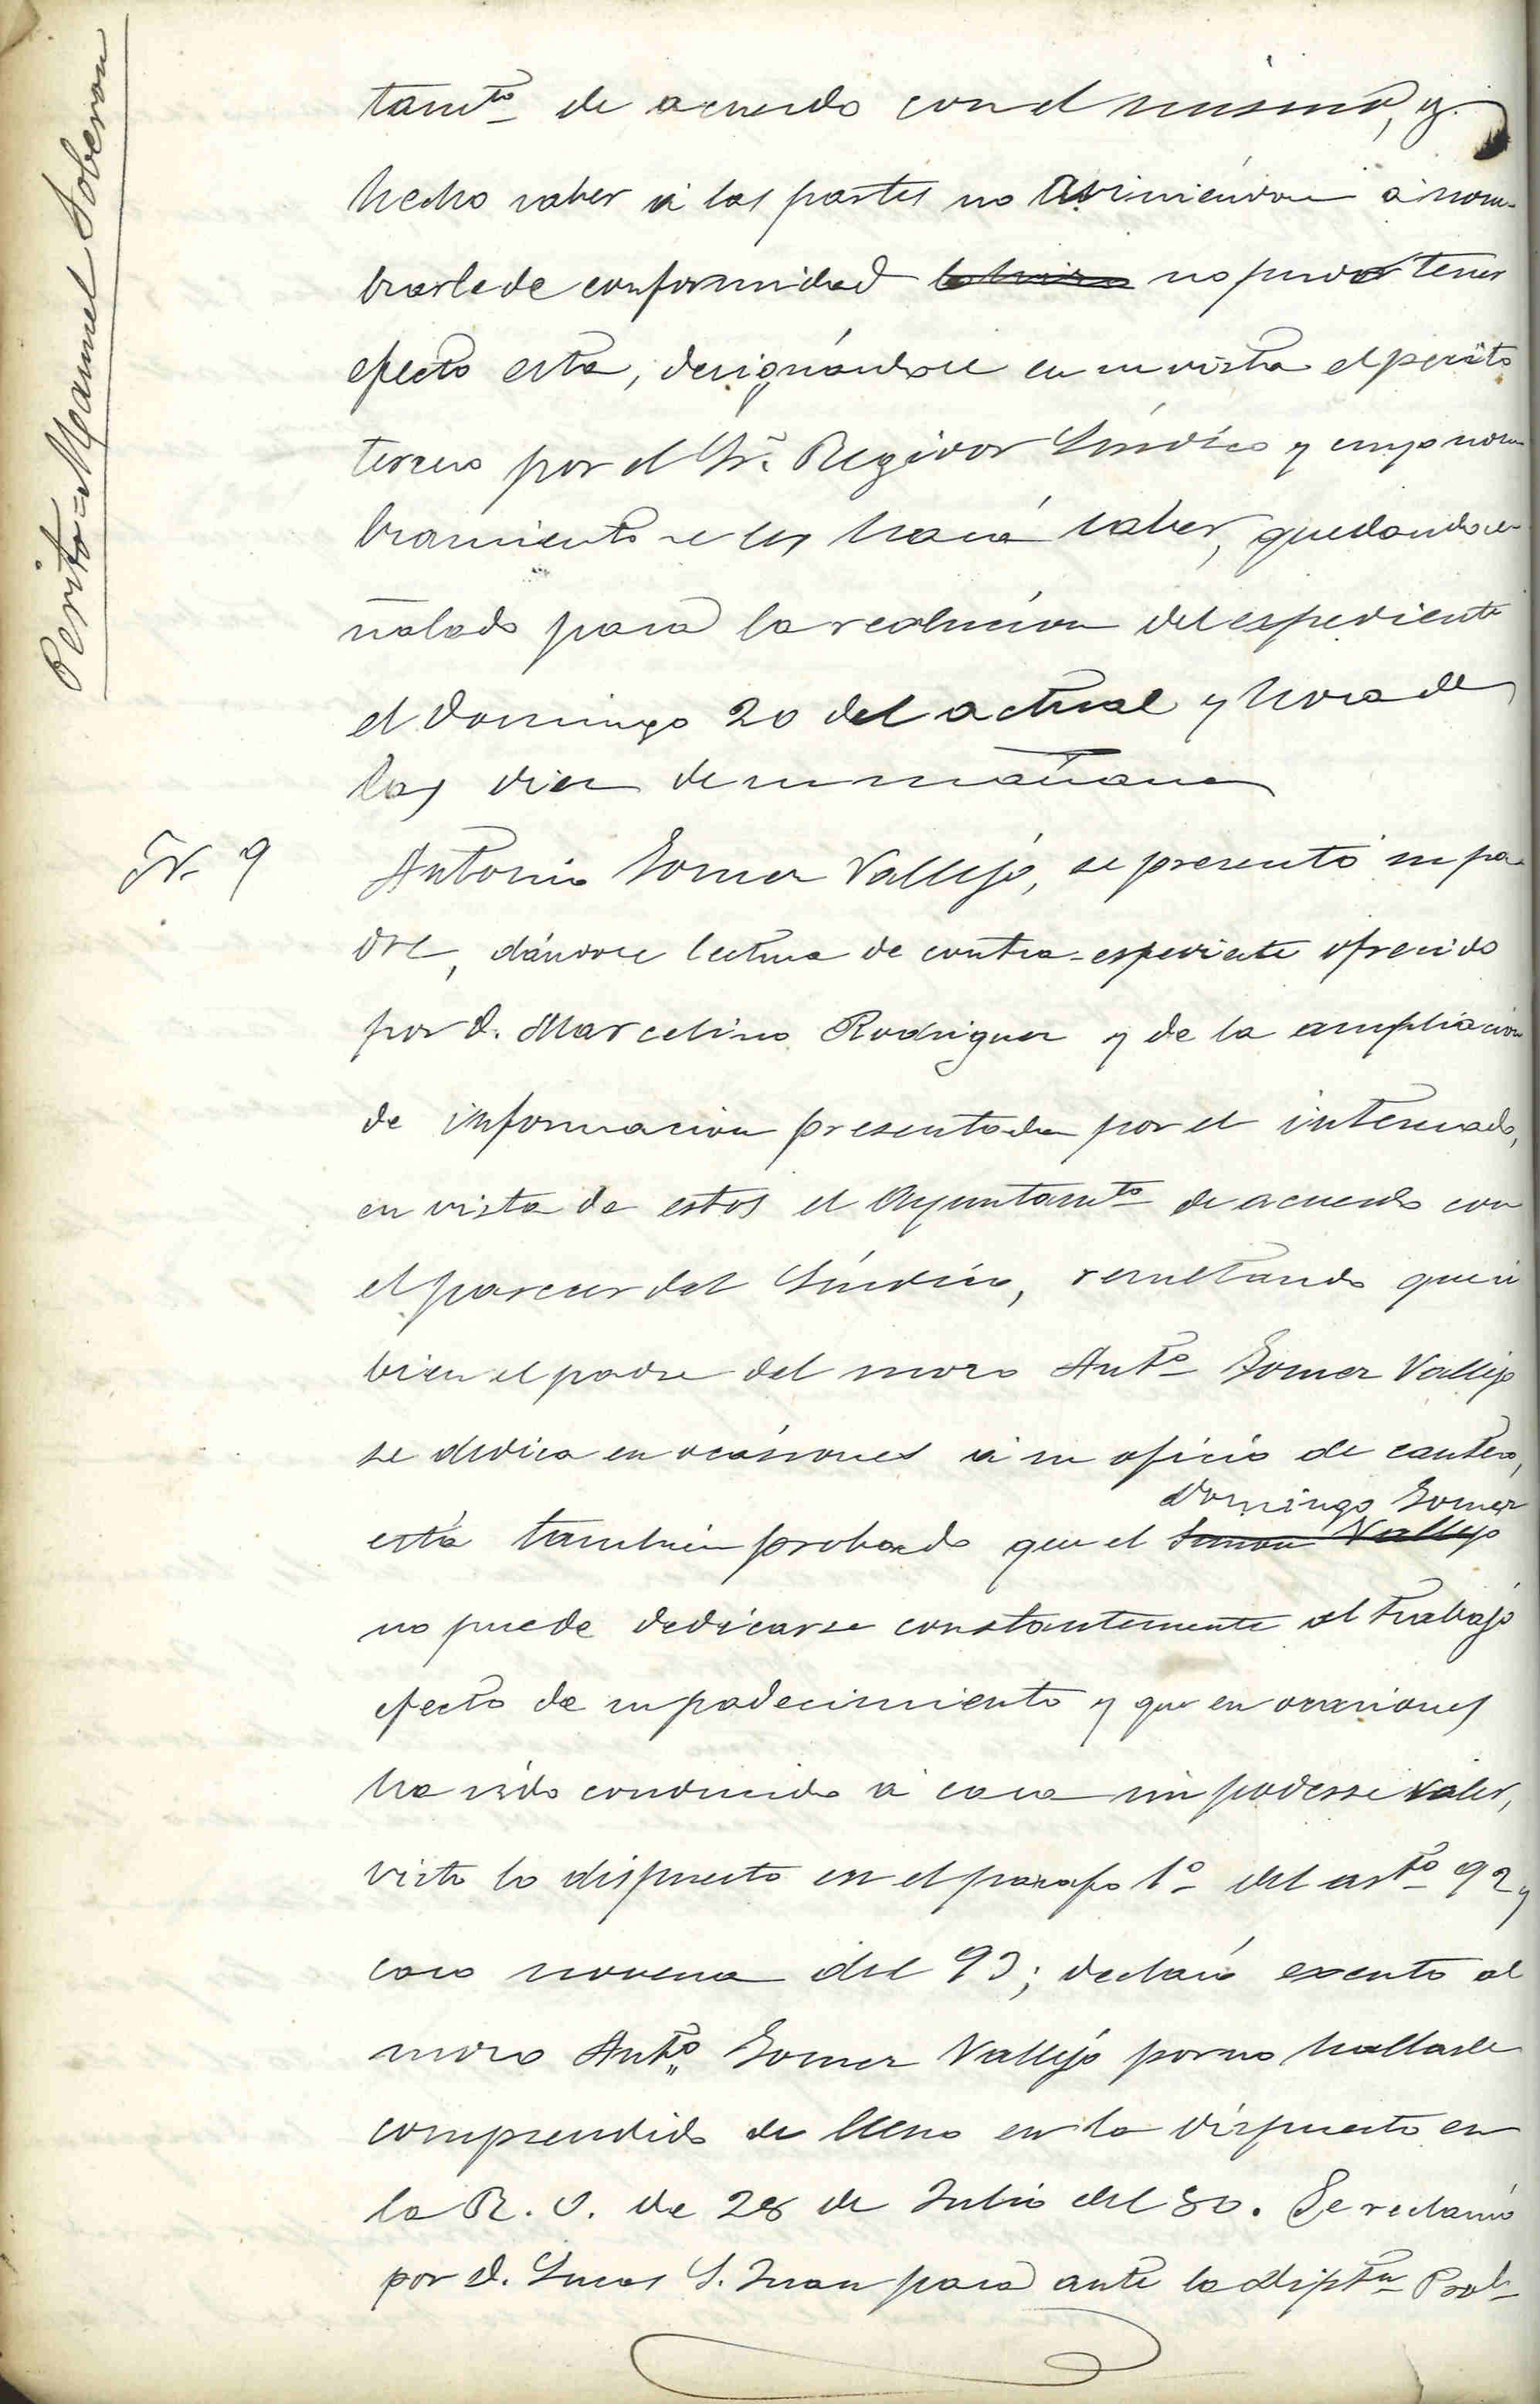 Perito = Manuel Soberon
tamto de acuerdo con el mismo, y
hecho saber á las partes no aviniendose á nom-
brarle de conformidad no pudo tener
efecto esta, designándose en su vista el perito
tercero por el Sr. Regidor Síndico y cuyo nom
bramiento se les hará saber, quedando se
ñalado para la resolucion del espediente
el Domingo 20 del actual y hora de
las diez de su mañana
N. 9
Antonio Gomez Vallejo, se presentó su pa-
dre, dándose lectura de contra-espediente ofrecido
por D. Marcelino Rodriguez y de la ampliacion
de informacion presentada por el interesado,
en vista de estos el Ayuntamto de acuerdo con
el parecer del Síndico, resultando que si
bien el padre del mozo Anto Gomez Vallejo
se dedica en ocasiones á su oficio de cantero,
Domingo Gomez
está tambien probado que el Vallejo
no puede dedicarse constantemente al trabajo
efecto de su padecimiento y que en ocasiones
ha sido conducido á casa sin poderse valer,
visto lo dispuesto en el parrafo 1º del arto 92 y
caso noveno del 93; declaró exento al
mozo Anto Gomez Vallejo por no hallarle
comprendido de lleno en lo dispuesto en
la R. O. de 28 de Julio del 80. Se reclamó
por D. Lucas S. Juan para ante la Diptn Prol